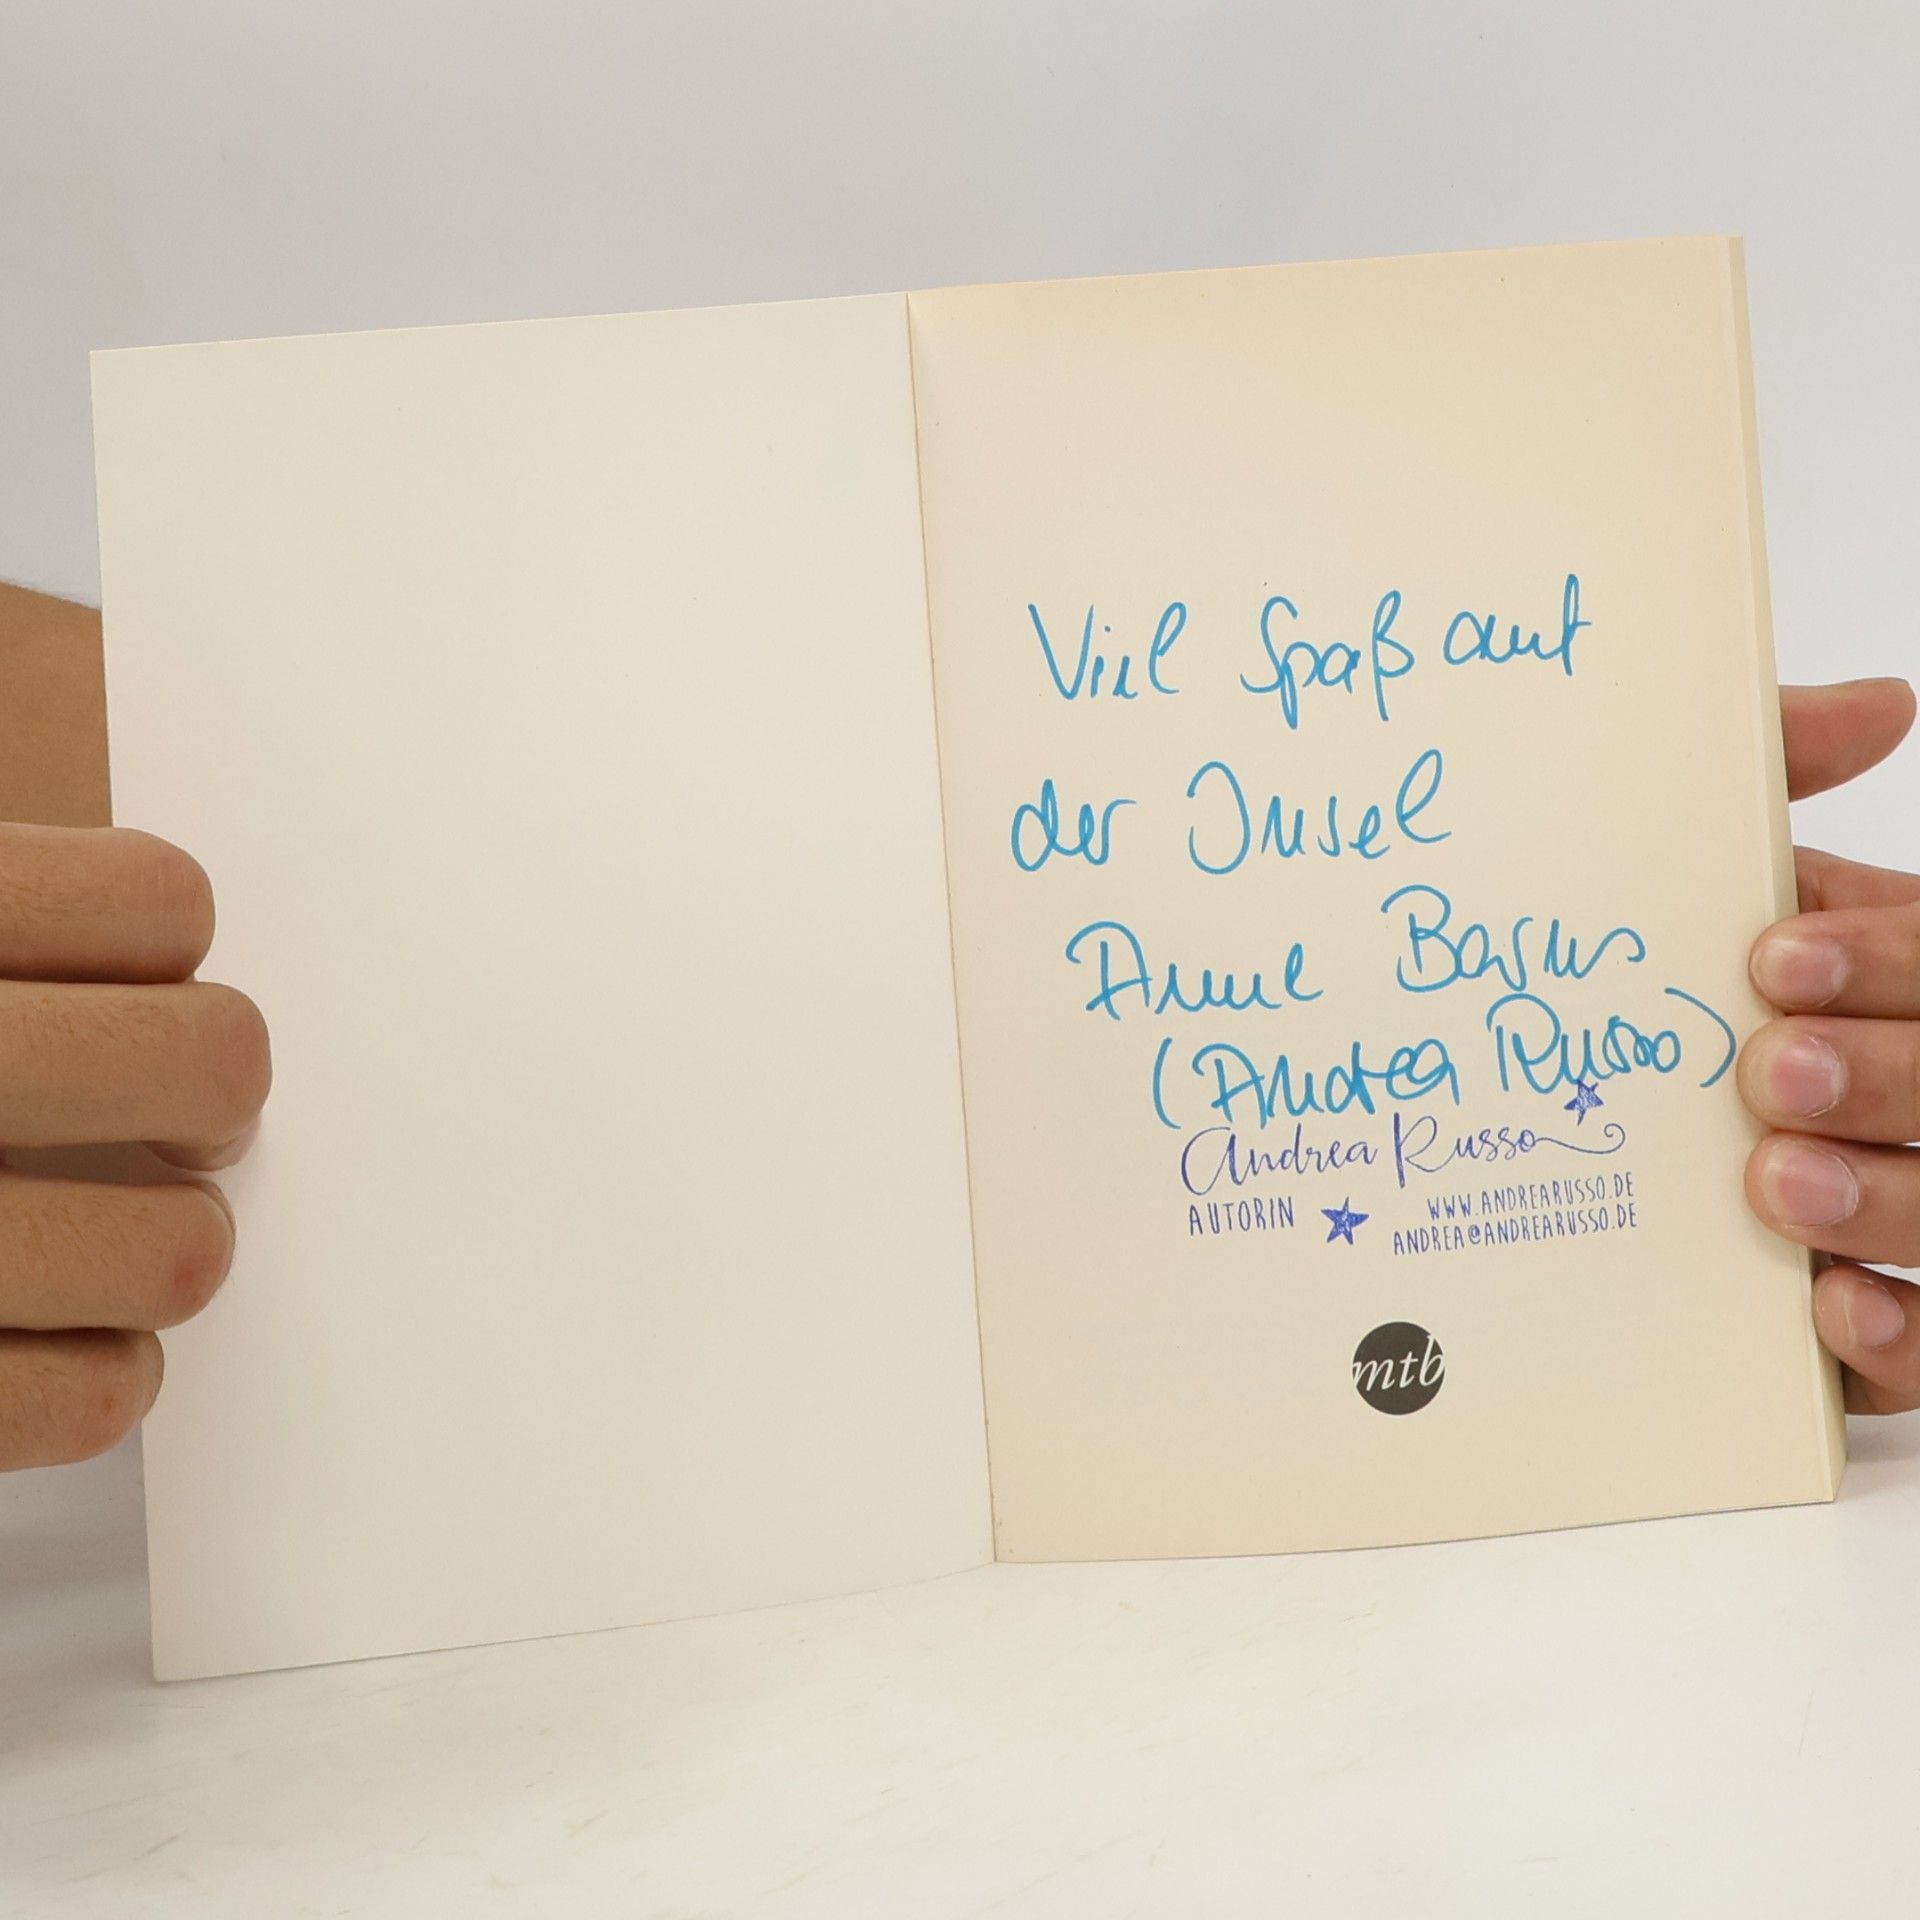 Viel Spaß auf
der Insel
Anne Barns
(Andrea Russo)
Andrea Russo
AUTORIN
WWW.ANDREARUSSO.DE
ANDREA@ANDREARUSSO.DE
mtb